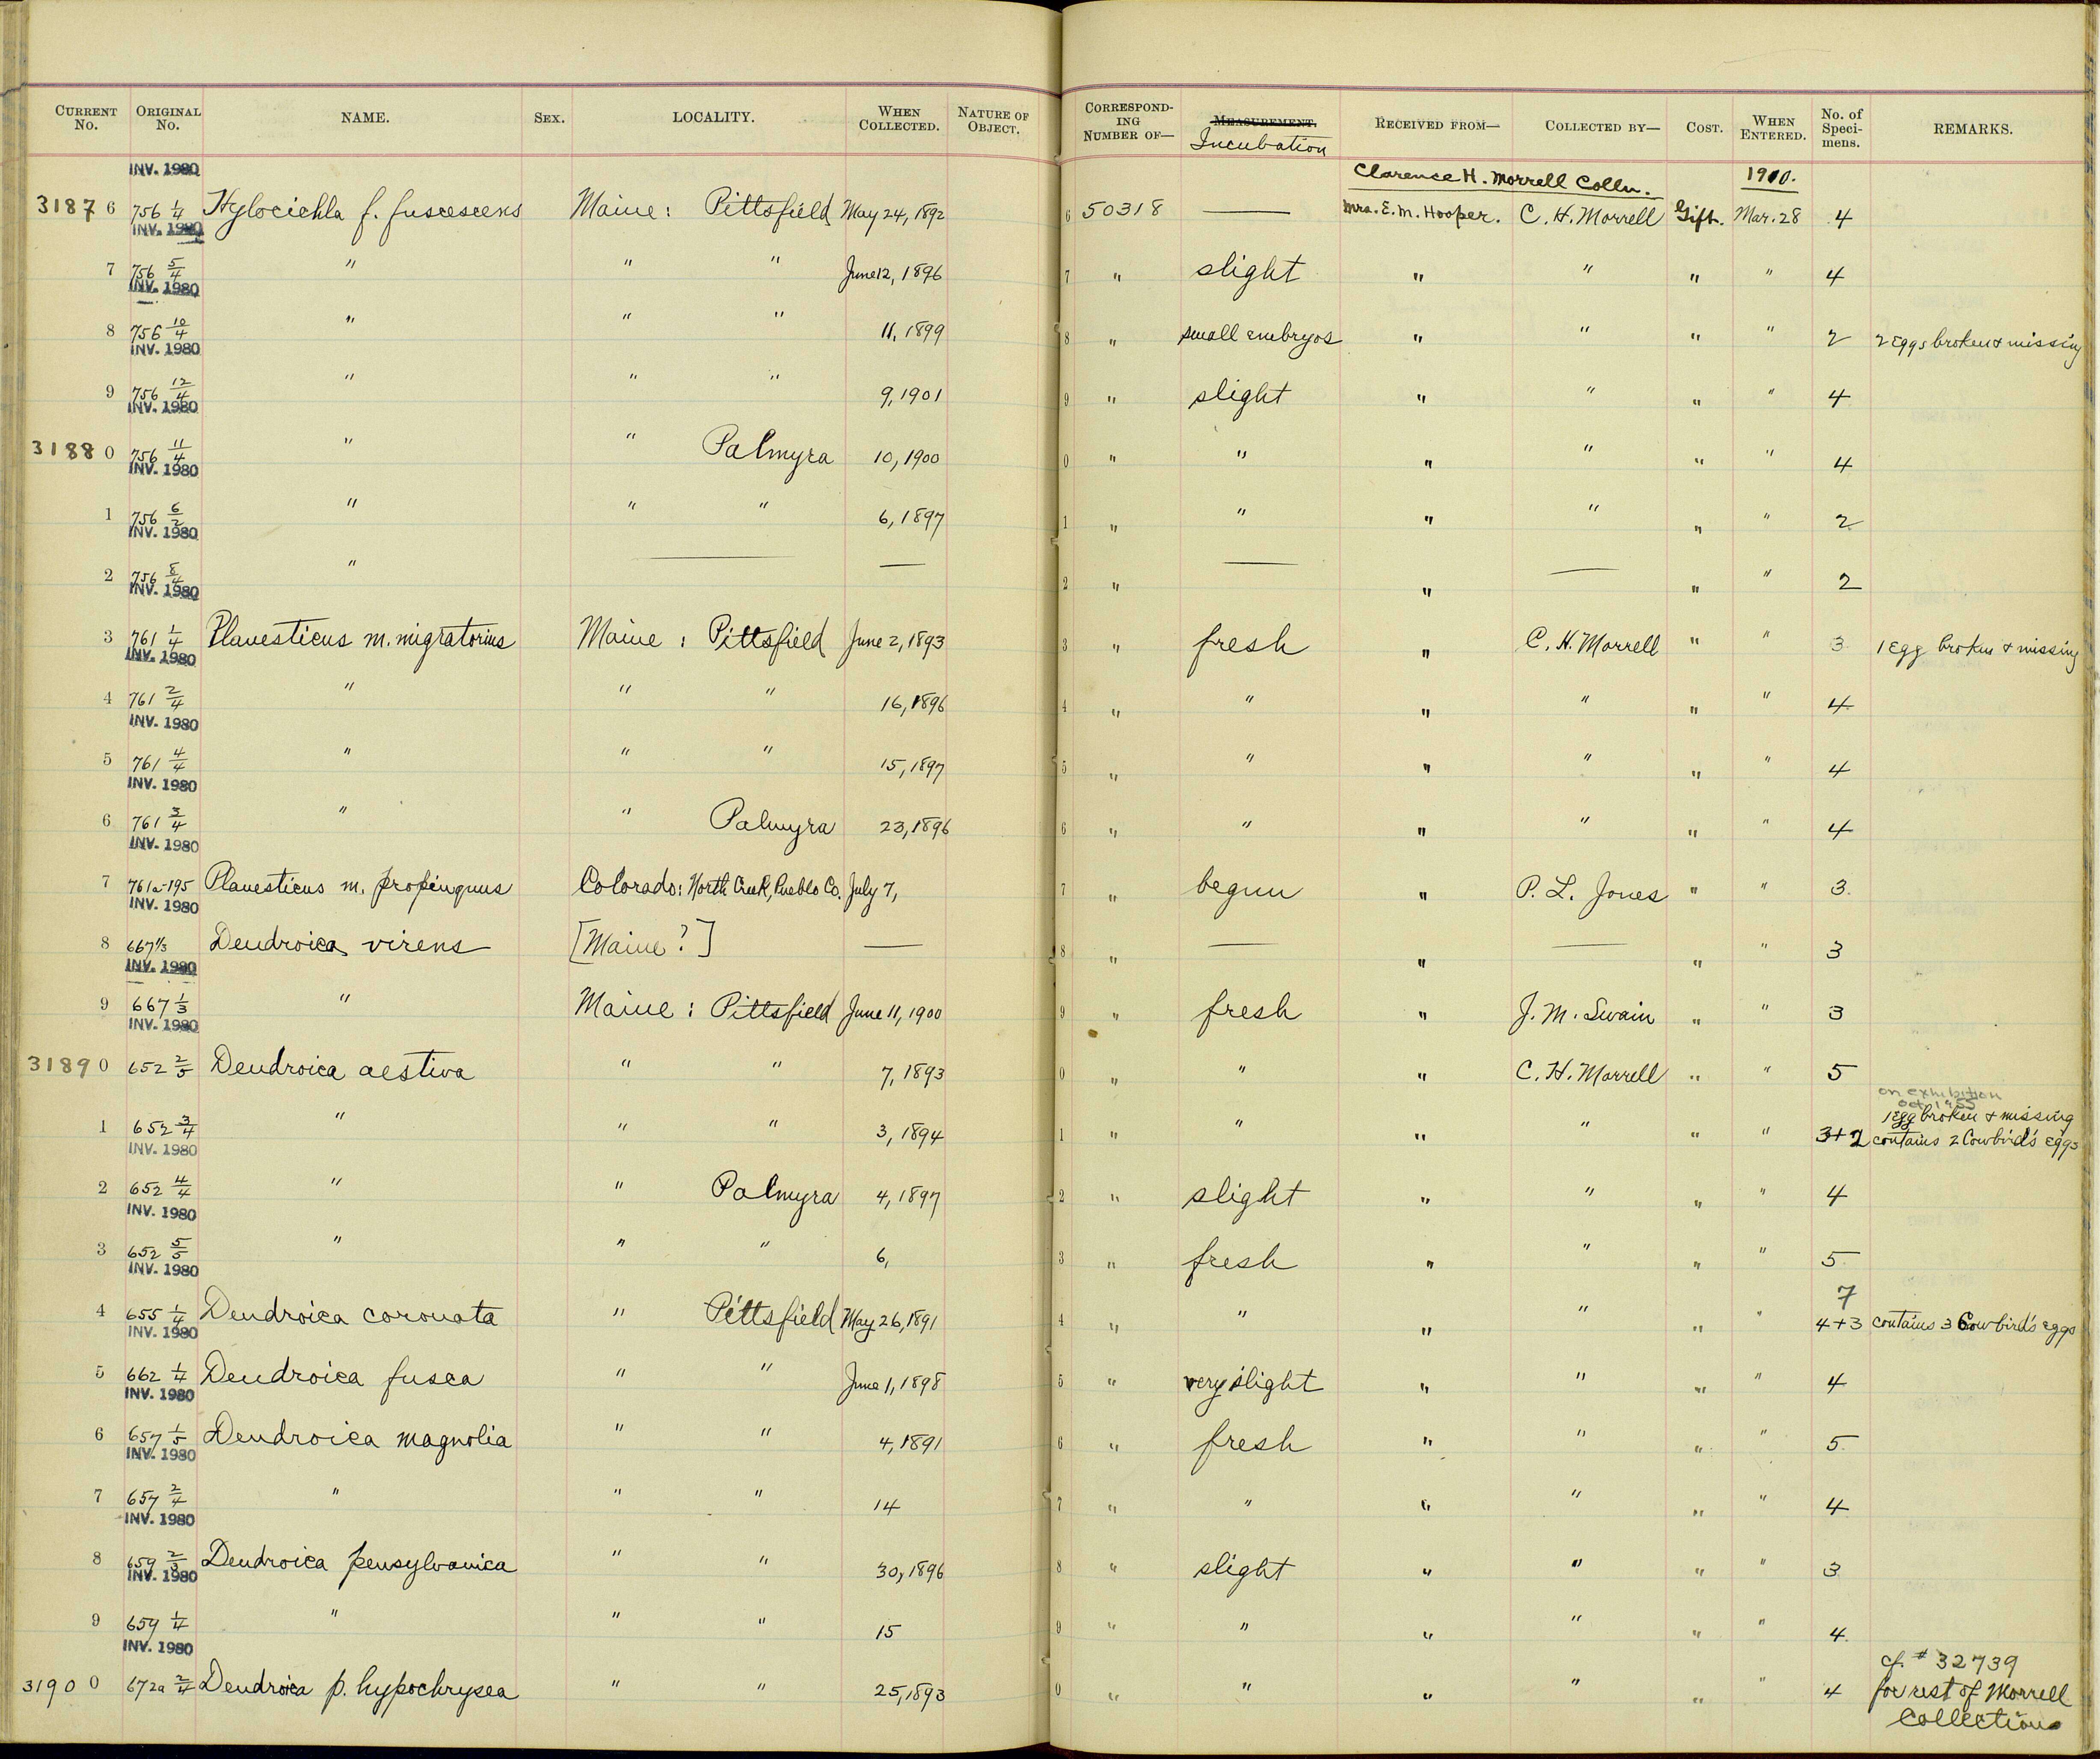 CURRENT No. ORIGINAL No. NAME. SEX. LOCALITY. WHEN COLLECTED. NATURE OF OBJECT. CORRESPONDING NUMBER OF— MEASUREMENT. Incubation RECEIVED FROM— COLLECTED BY— COST. WHEN ENTERED. No. of Specimens. REMARKS.
INV. 1980 Clarence H. Morrell Colln. 1910.
31876 756 1/4 Hylocichla f. fuscescens Maine: Pittsfield May 24, 1892 6 50318 — Mrs. E. M. Hooper. C. H. Morrell Gift. Mar. 28 4
INV. 1980
7 756 5/4 " " " June 12, 1896 7 " slight " " " " 4
INV. 1980
8 756 10/4 " " " 11, 1899 8 " small embryos " " " " 2 2 Eggs broken & missing
INV. 1980
9 756 12/4 " " " 9, 1901 9 " slight " " " " 4
INV. 1980
31880 756 11/4 " " Palmyra 10, 1900 0 " " " " " " 4
INV. 1980
1 756 6/2 " " " 6, 1897 1 " " " " " " 2
INV. 1980
2 756 8/4 " — — 2 " — " — " " 2
INV. 1980
3 761 1/4 Planesticus m. migratorius Maine : Pittsfield June 2, 1893 3 " fresh " C. H. Morrell " " 3 1 Egg broken & missing
INV. 1980
4 761 2/4 " " " 16, 1896 4 " " " " " " 4
INV. 1980
5 761 4/4 " " " 15, 1897 5 " " " " " " 4
INV. 1980
6 761 3/4 " " Palmyra 23, 1896 6 " " " " " " 4
INV. 1980
7 761a-195 Planesticus m. propinquus Colorado: North Creek, Pueblo Co. July 7, 7 " begun " P. L. Jones " " 3.
INV. 1980
8 667 1/3 Dendroica virens [Maine?] — 8 " — " — " " 3
INV. 1980
9 667 1/3 " Maine : Pittsfield June 11, 1900 9 " fresh " J. M. Swain " " 3
INV. 1980
31890 652 2/5 Dendroica aestiva " " 7, 1893 0 " " " C. H. Morrell " " 5
on exhibition
Oct 1955
1 Egg broken & missing
1 652 3/4 " " " 3, 1894 1 " " " " " " 3+2 contains 2 Cowbird's eggs
INV. 1980
2 652 4/4 " " Palmyra 4, 1897 2 " slight " " " " 4
INV. 1980
3 652 5/5 " " " 6, 3 " fresh " " " " 5
INV. 1980
7
4 655 1/4 Dendroica coronata " Pittsfield May 26, 1891 4 " " " " " " 4+3 contains 3 Cowbird's eggs
INV. 1980
5 662 1/4 Dendroica fusca " " June 1, 1898 5 " very slight " " " " 4
INV. 1980
6 657 1/5 Dendroica magnolia " " 4, 1891 6 " fresh " " " " 5
INV. 1980
7 657 2/4 " " " 14 7 " " " " " " 4
INV. 1980
8 659 2/3 Dendroica pensylvanica " " 30, 1896 8 " slight " " " " 3
INV. 1980
9 659 1/4 " " " 15 9 " " " " " " 4
INV. 1980
cf. # 32739
31900 672a 2/4 Dendroica p. hypochrysea " " 25, 1893 0 " " " " " " 4 for rest of Morrell
Collections